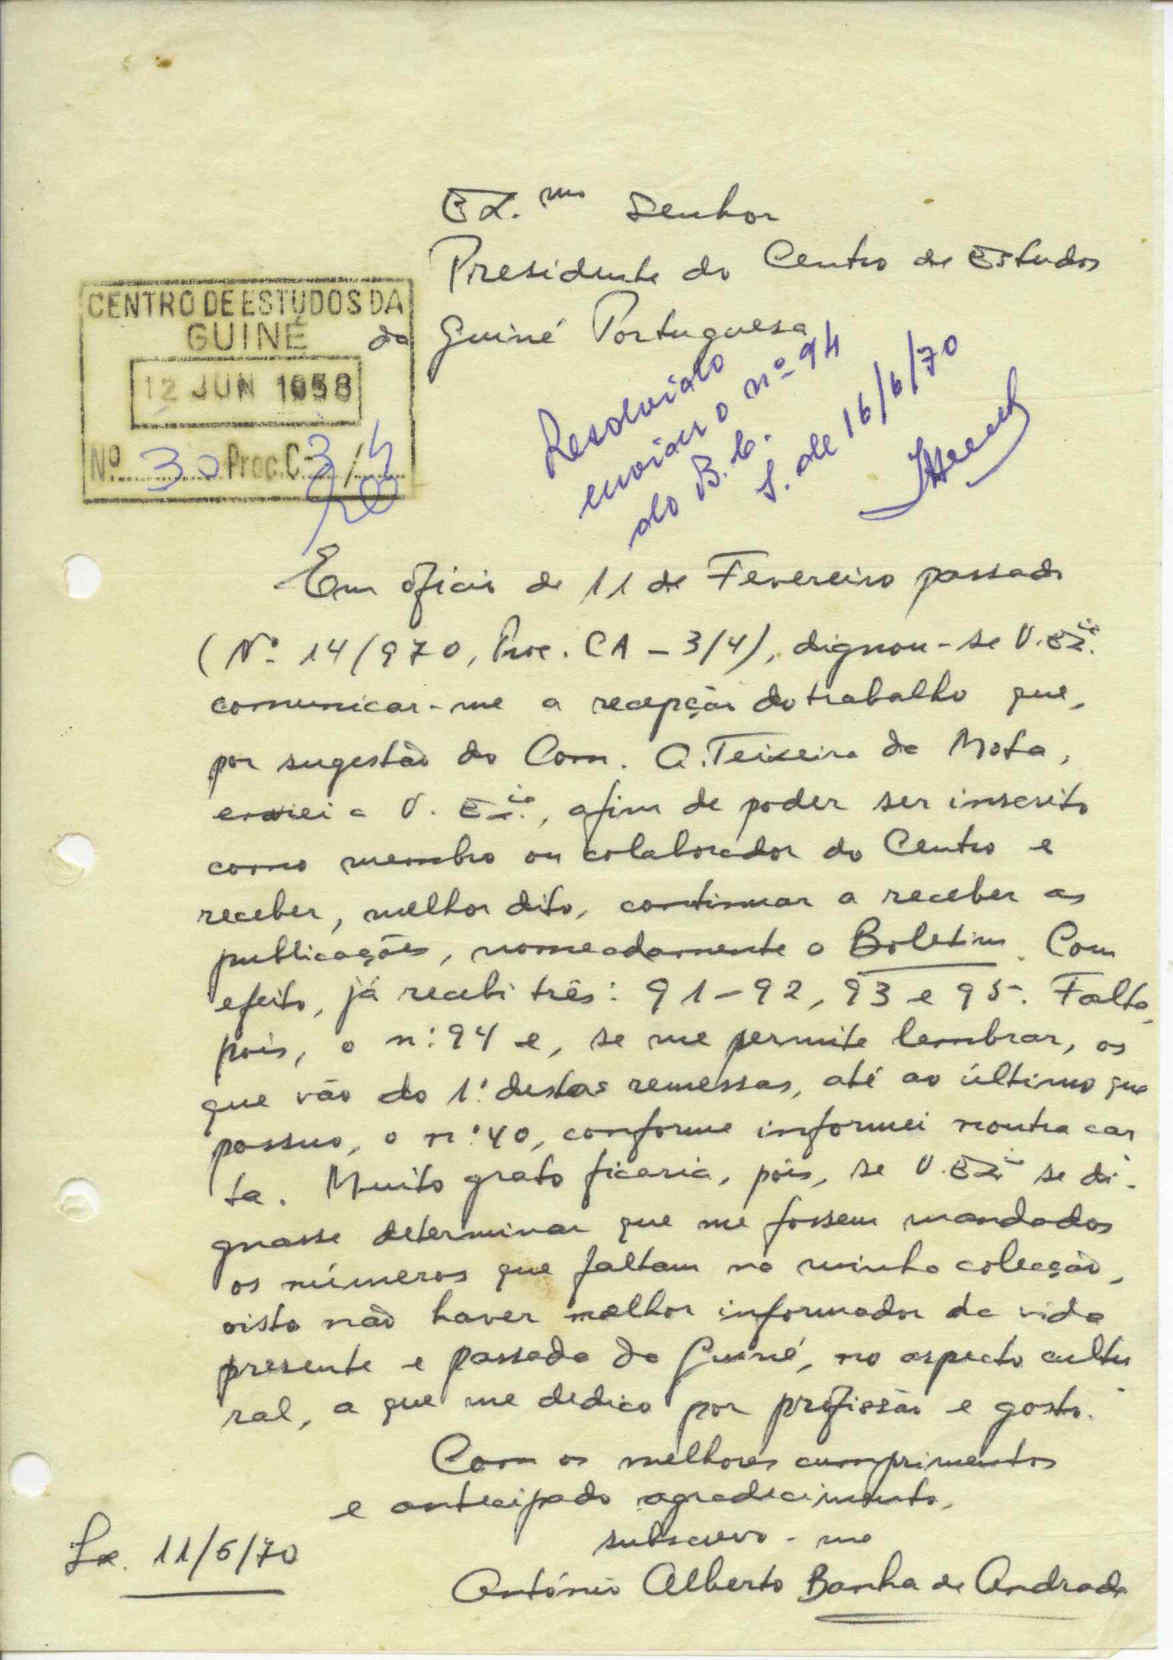 Ex.mo Senhor
Presidente do Centro de Estudos
da Guiné Portuguesa
CENTRO DE ESTUDOS DA
GUINÉ
12 JUN 1958
Nº 30 Proc. C 3/4
Resolvido
enviar o nº 94
do B. C.
S. de 16/6/70
Em ofício de 11 de Fevereiro passado
(Nº 14/970, Proc. CA - 3/4), dignou-se V. Exª.
comunicar-me a recepção do trabalho que,
por sugestão do Com. A. Teixeira da Mota,
enviei a V. Exª., afim de poder ser inscrito
como membro ou colaborador do Centro e
receber, melhor dito, continuar a receber as
publicações, nomeadamente o Boletim. Com
efeito, já recebi três: 91-92, 93 e 95. Falta,
pois, o n.º 94 e, se me permite lembrar, os
que vão do 1.º destas remessas, até ao último que
possuo, o n.º 40, conforme informei noutra car
ta. Muito grato ficaria, pois, se V. Exª se di-
gnasse determinar que me fossem mandados
os números que faltam na minha colecção,
visto não haver melhor informador da vida
presente e passada da Guiné, no aspecto cultu
ral, a que me dedico por profissão e gosto.
Com os melhores cumprimentos
e antecipado agradecimento,
subscrevo-me
Lx. 11/6/70
António Alberto Banha de Andrade